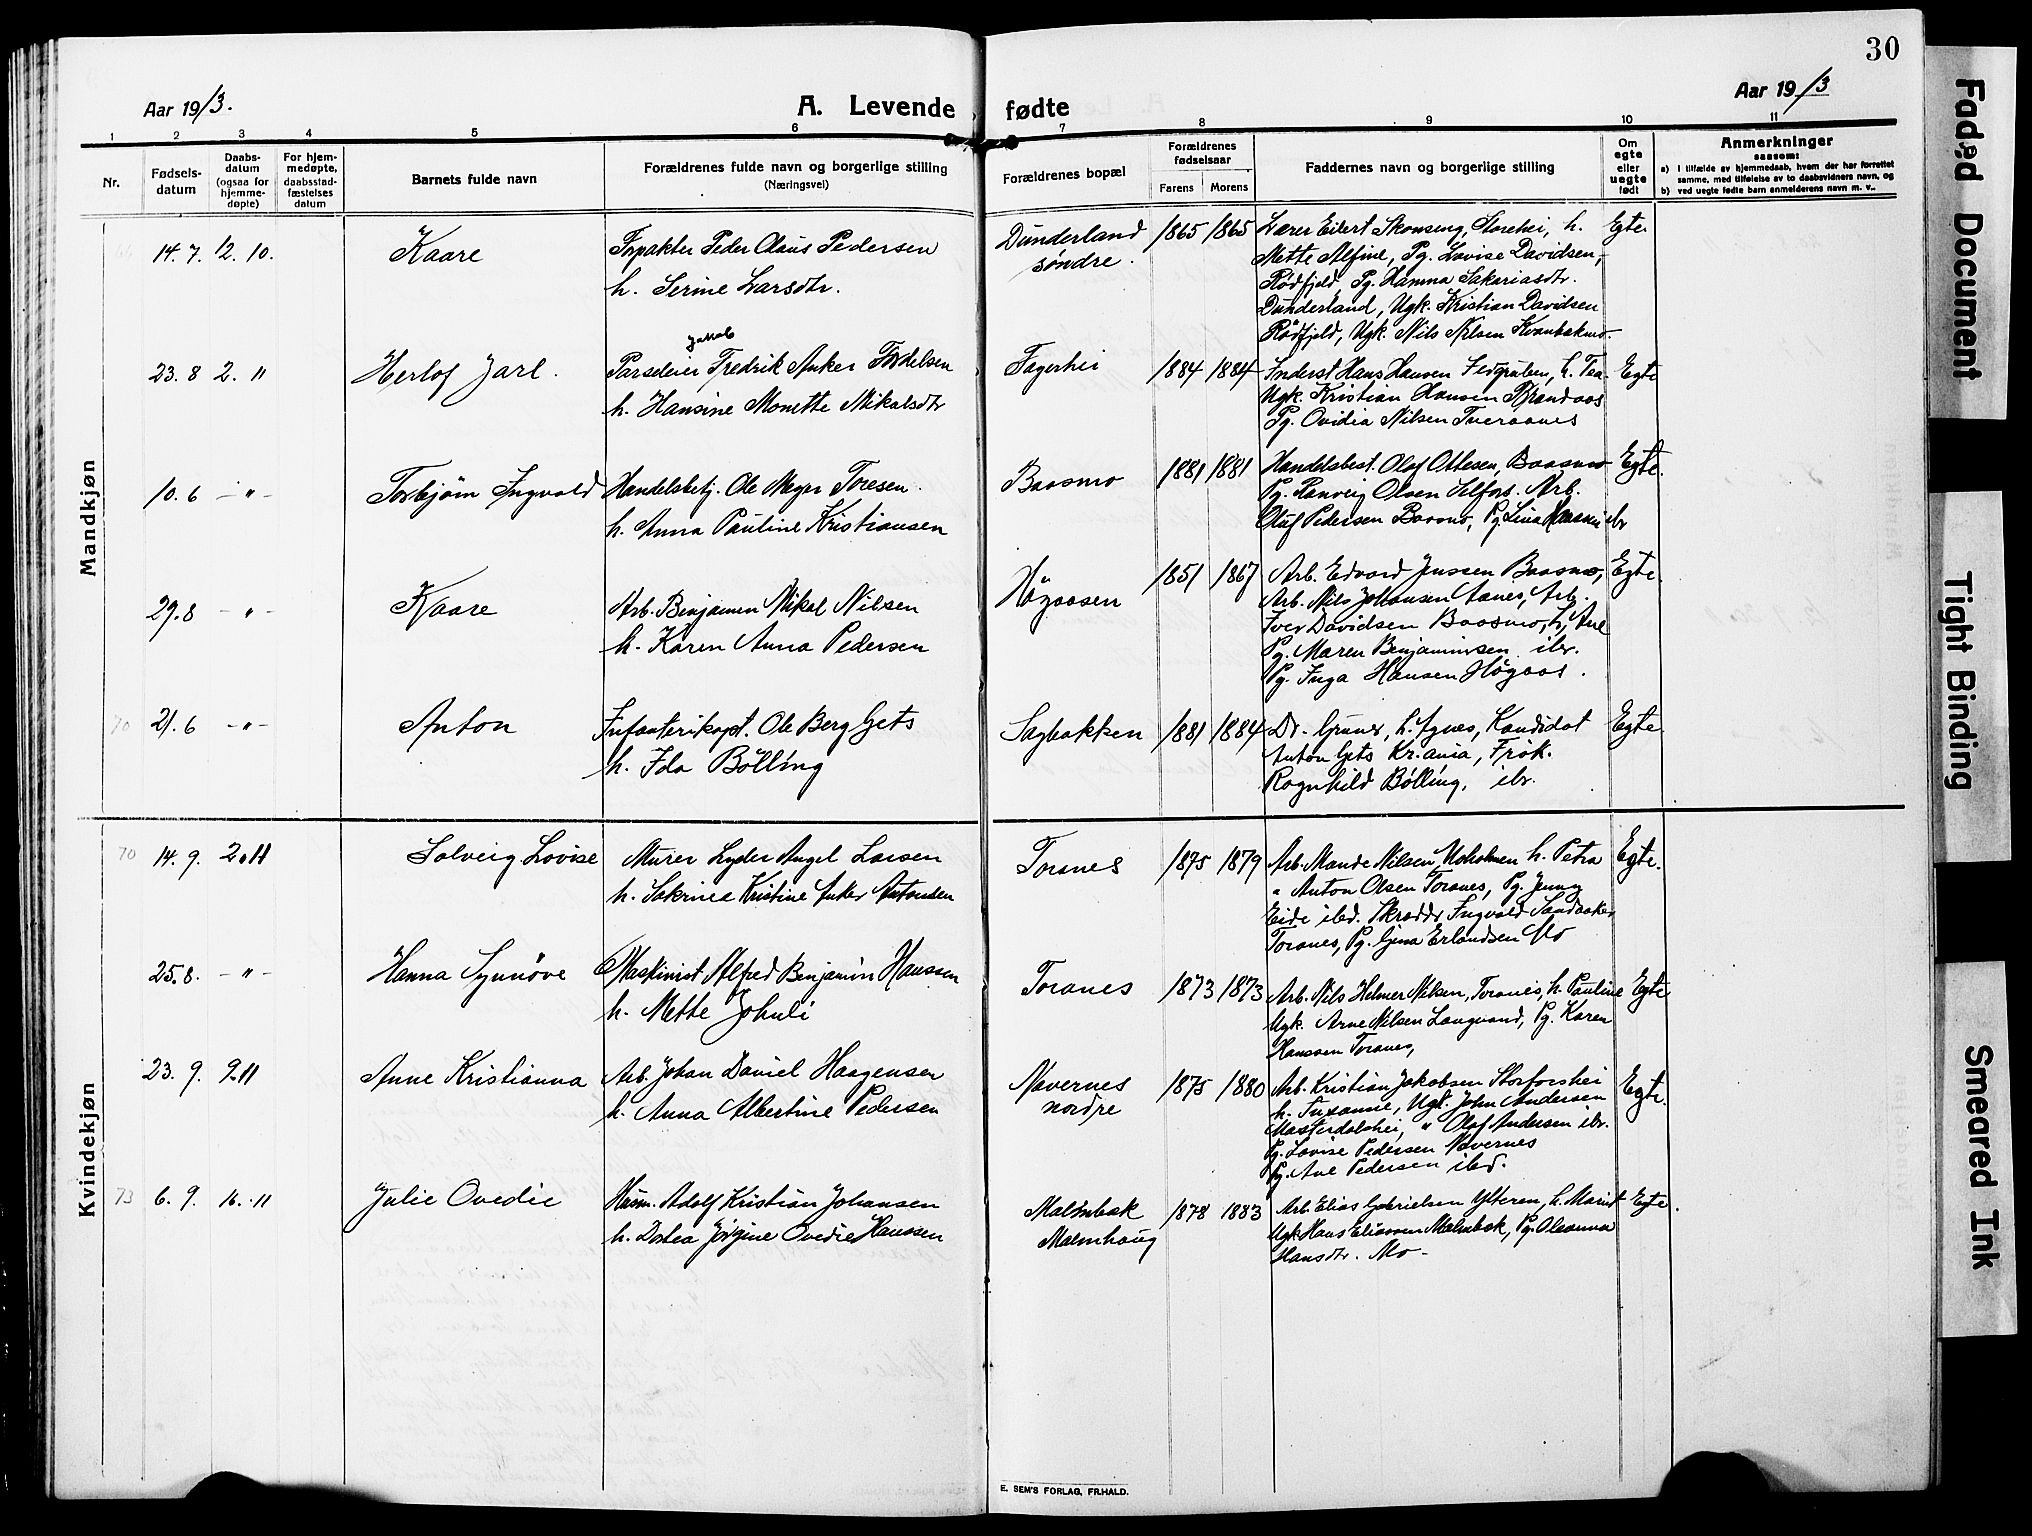 30
Aar 1913.
A. Levende fødte
Aar 1913
1 2 3 4 5 6 7 8 9 10 11
Nr.
Fødsels-
datum
Daabs-
datum
(ogsaa for
hjemme-
døpte)
For hjem-
medøpte,
daabsstad-
fæstelses
datum
Barnets fulde navn
Forældrenes fulde navn og borgerlige stilling
(Næringsvei)
Forældrenes bopæl
Forældrenes
fødselsaar
Farens Morens
Faddernes navn og borgerlige stilling
Om
egte
eller
uegte
født
Anmerkninger
saasom:
a) I tilfælde av hjemmedaab, hvem der har forrettet
samme, med tilføielse av to daabsvidners navn, og
b) ved uegte fødte barn anmelderens navn m. v..
Mandkjøn
14. 7. 12. 10.
Kaare
Forpakter Peder Claus Pedersen
h. Serine Larsdtr.
Dunderland
søndre.
1865 1865
Lærer Eilert Skonseng, Storehei, h.
Mette Alfine, Pg. Lovise Davidsen,
Rødfjeld, Pg. Hanna Sakariasdtr.
Dunderland, Ugk. Kristian Davidsen
Rødfjeld, Ugk. Nils Nilsen Kvanbakmo.
Egte.
23. 8 2. 11
Herlof Jarl.
Jakob
Parseleier Fredrik Anker Tordelsen
h. Hansine Monette Mikalsdtr
Fagerhei
1884 1884
Inderst Hans Hansen h. Tea.
Ugk. Kristian Hansen Brandaas
Pg. Ovidia Nilsen Tveraanes
Egte
10. 6 - " -
Torbjørn Ingvald
Handelsbetj. Ole Meyer Toresen.
h. Anna Pauline Kristiansen
Baasmo
1881 1881
Handelsbest. Olaf Ottesen, Baasmo
Pg. Ranveig Olsen Selfors. Arb.
Oluf Pedersen Baasmo, Pg Lina Hansen ibr
Egte.
29. 8 - " -
Kaare
Arb. Benjamin Mikal Nilsen
h. Karen Anna Pedersen
Høgaasen
1851 1867
Arb. Edvard Jenssen Baasmo,
Arb. Nils Johansen Aanes, Arb.
Iver Davidsen Baasmo, h. Ane
Pg. Maren Benjaminsen ibr.
Pg. Inga Hansen Høgaas.
Egte.
70 21. 6 - " -
Anton
Infanterikapt. Ole Berg Gets
h. Ida Bölling
Sagbakken
1881 1884
Dr. h. Agnes, Kandidat
Anton Gets Kr.ania, Frøk.
Ragnhild Bölling, ibr.
Egte.
Kvindekjøn
70 14. 9. 2. 11
Solveig Lovise
Murer Lyder Angel Larsen
h. Sakrinea Kristine Anker Antonsen
Toranes
1875 1879
Arb. Mande Nilsen, h. Petra
" Anton Olsen Toranes, Pg. Jenny
Eide ibd. Skrædder Ingvald Sandbakk
Toranes, Pg. Gina Erlandsen Mo
Egte.
25. 8. - " -
Hanna Synnöve
Maskinist Alfred Benjamin Hanssen
h. Mette Johnli
Toranes
1873 1873
Arb. Nils Helmer Nilsen, Toranes, h. Pauline
Ugk. Arne Nilsen Langvand, Pg. Karen
Hanssen Toranes,
Egte
23. 9. 9. 11
Anne Kristianna
Arb. Johan Daniel Haagensen
h. Anna Albertine Pedersen
Nævernes
nordre
1875 1880
Arb. Kristian Jakobsen Storforshei
h. Susanne, Ugk. John Andersen
Masterdalshei, " Olaf Andersen ibr.
Pg. Lovise Pedersen Nævernes
Pg. Ane Pedersen ibd.
Egte.
73 6. 9. 16. 11
Julie Ovedie
Husm. Adolf Kristian Johansen
h. Dortea Jørgine Ovedie Hanssen
Malmbak
Malmhaug
1878 1883
Arb. Elias Gabrielsen Ytteren, h. Marit
Ugk Hans Eliassen Malmbak, Pg. Oleanna
Hansdtr. Mo -
Egte.
E. SEM'S FORLAG, FR.HALD.
Faded Document
Tight Binding
Smeared Ink